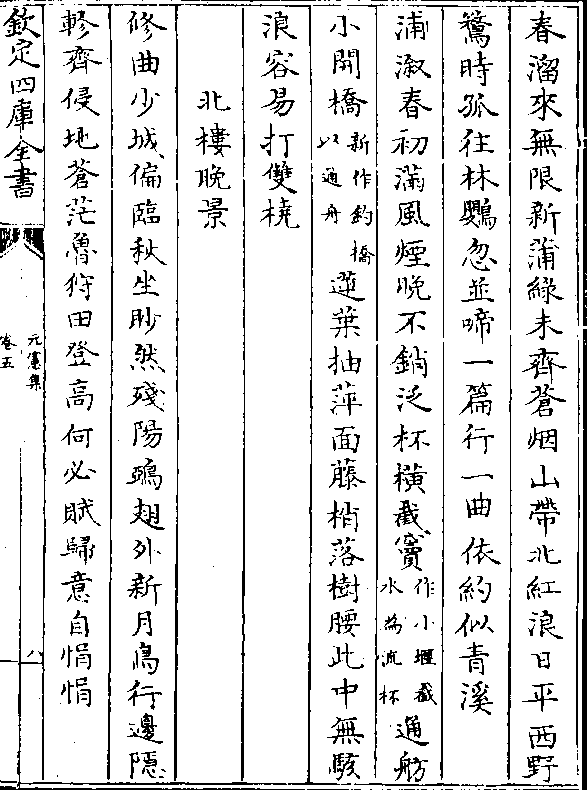 春溜來無限新蒲綠未齊蒼烟山帶北紅浪日平西野
鶩時孤往林鸚忽並啼一篇行一曲依約似青溪
浦溆春初滿風煙晚不銷泛杯橫截竇作小堰截水為流杯通舫
小開橋新作釣橋以通舟蓮葉抽萍面藤梢落樹腰此中無駭
浪容易打雙橈
北樓晚景
修曲少城偏臨秋坐眇然殘陽鵶翅外新月鳥行邊隱
軫齊侵地蒼茫魯狩田登高何必賦歸意自悁悁
欽定四庫全書
元憲集
卷五
八